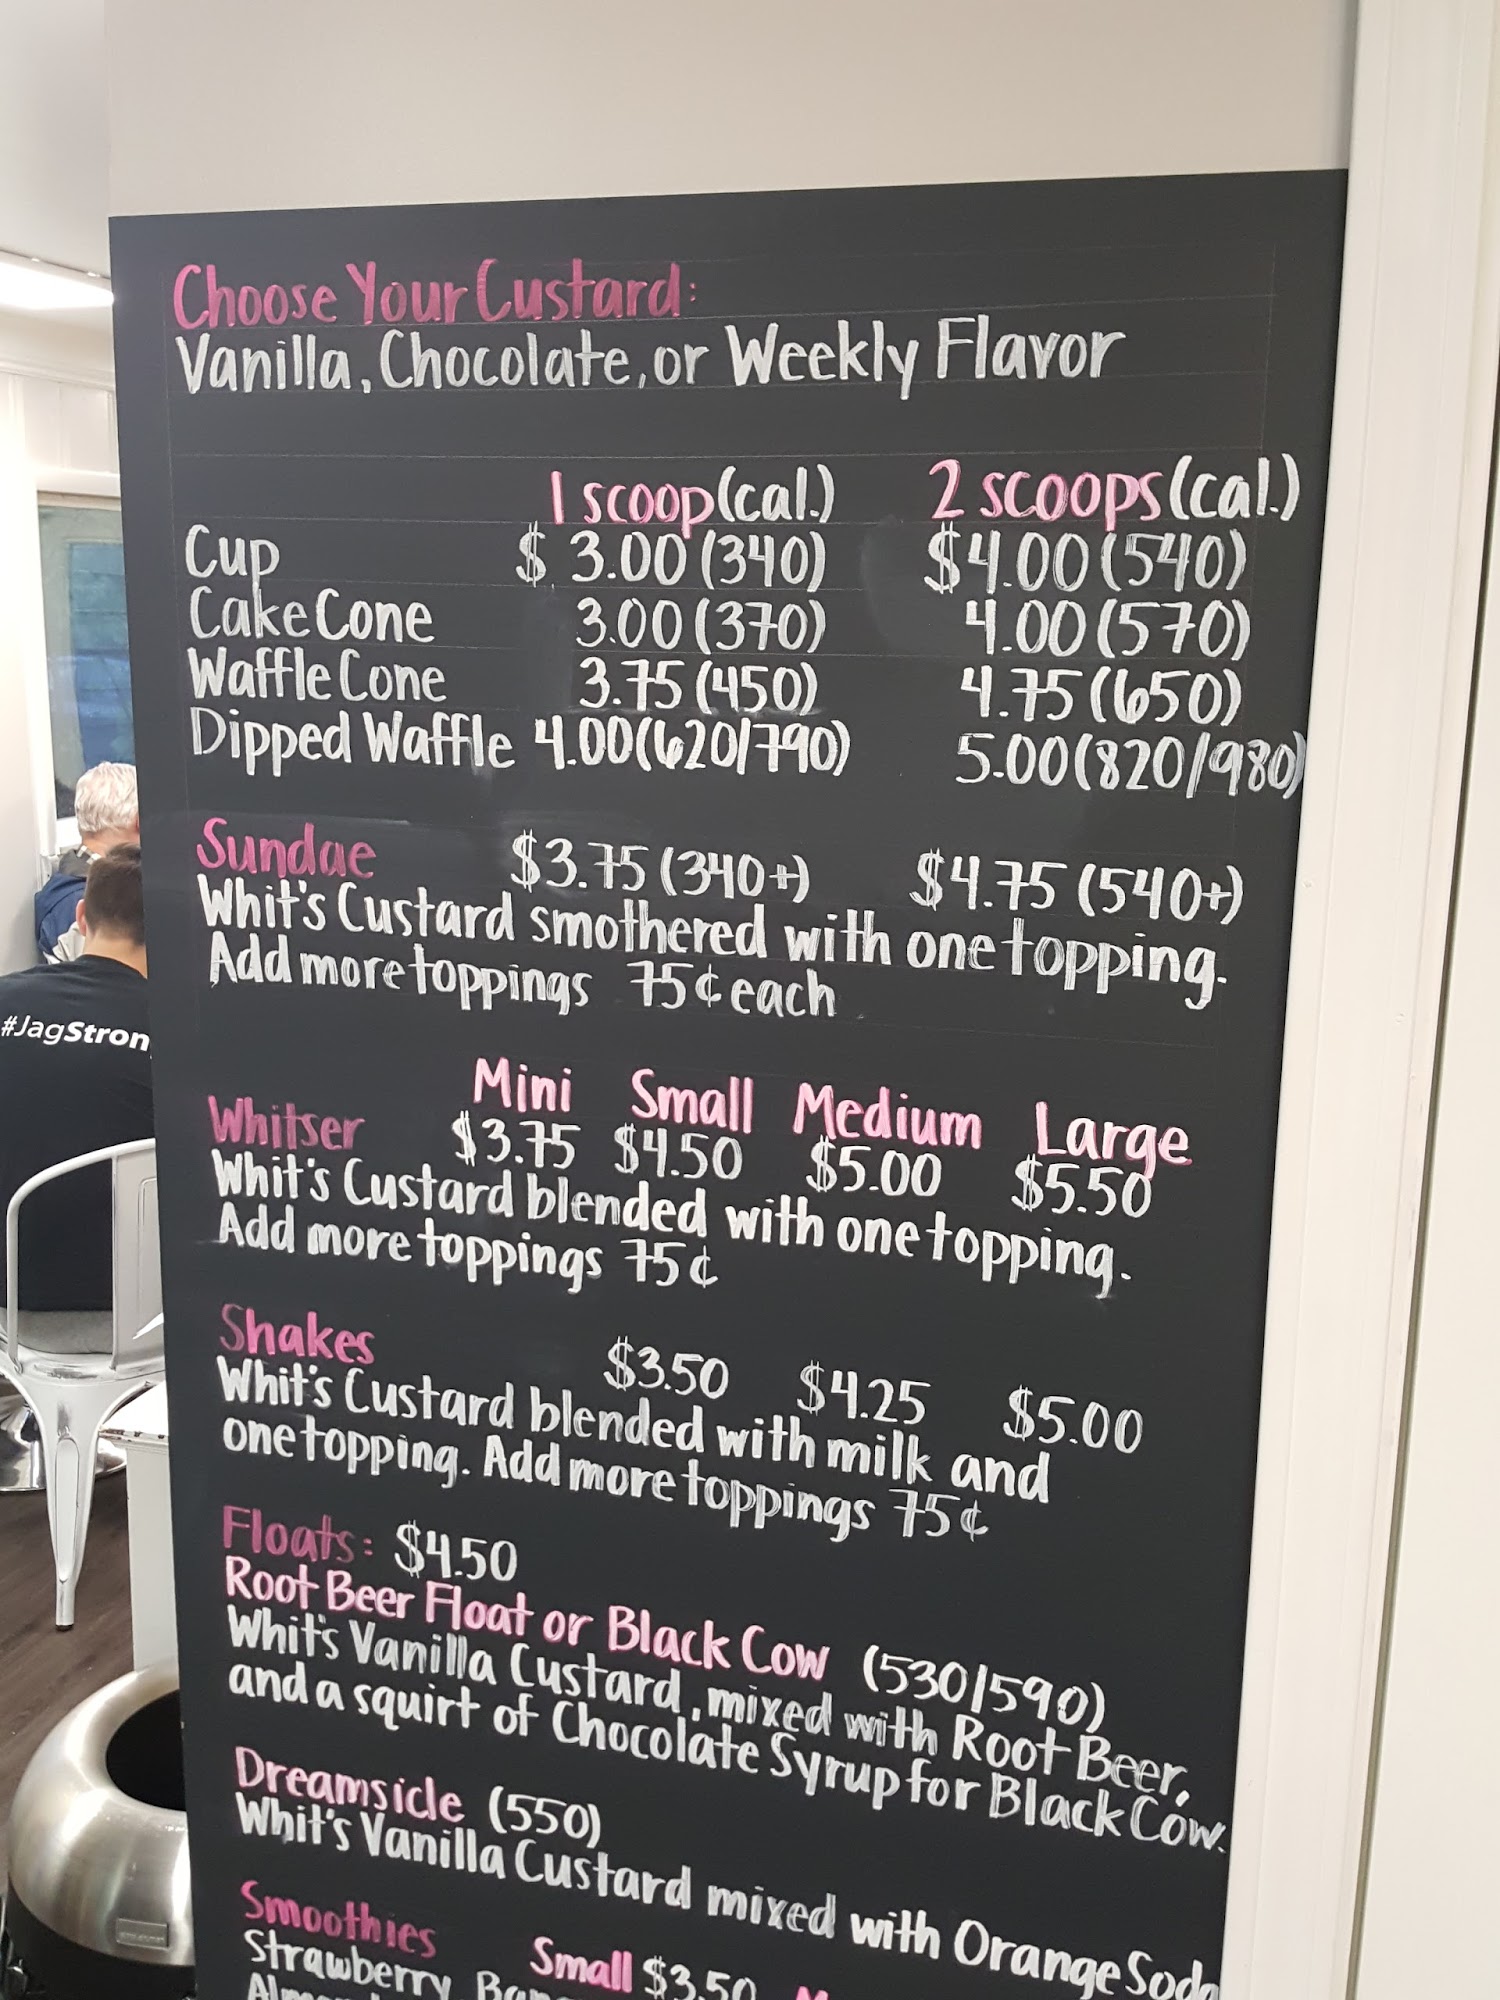 Choose Your Custard:
Vanilla, Chocolate, or Weekly Flavor
1 scoop (cal.) 2 scoops (cal.)
Cup $ 3.00 (340) $4.00 (540)
Cake Cone 3.00 (370) 4.00 (570)
Waffle Cone 3.75 (450) 4.75 (650)
Dipped Waffle 4.00 (620/790) 5.00 (820/980)
Sundae $3.75 (340+) $4.75 (540+)
Whit's Custard smothered with one topping.
Add more toppings 75¢ each
Mini Small Medium Large
Whitser $3.75 $4.50 $5.00 $5.50
Whit's Custard blended with one topping.
Add more toppings 75¢
Shakes $3.50 $4.25 $5.00
Whit's Custard blended with milk and
one topping. Add more toppings 75¢
Floats: $4.50
Root Beer Float or Black Cow (530/590)
Whit's Vanilla Custard, mixed with Root Beer,
and a squirt of Chocolate Syrup for Black Cow.
Dreamsicle (550)
Whit's Vanilla Custard mixed with Orange Soda
Smoothies Small $3.50
Strawberry
#JagStron